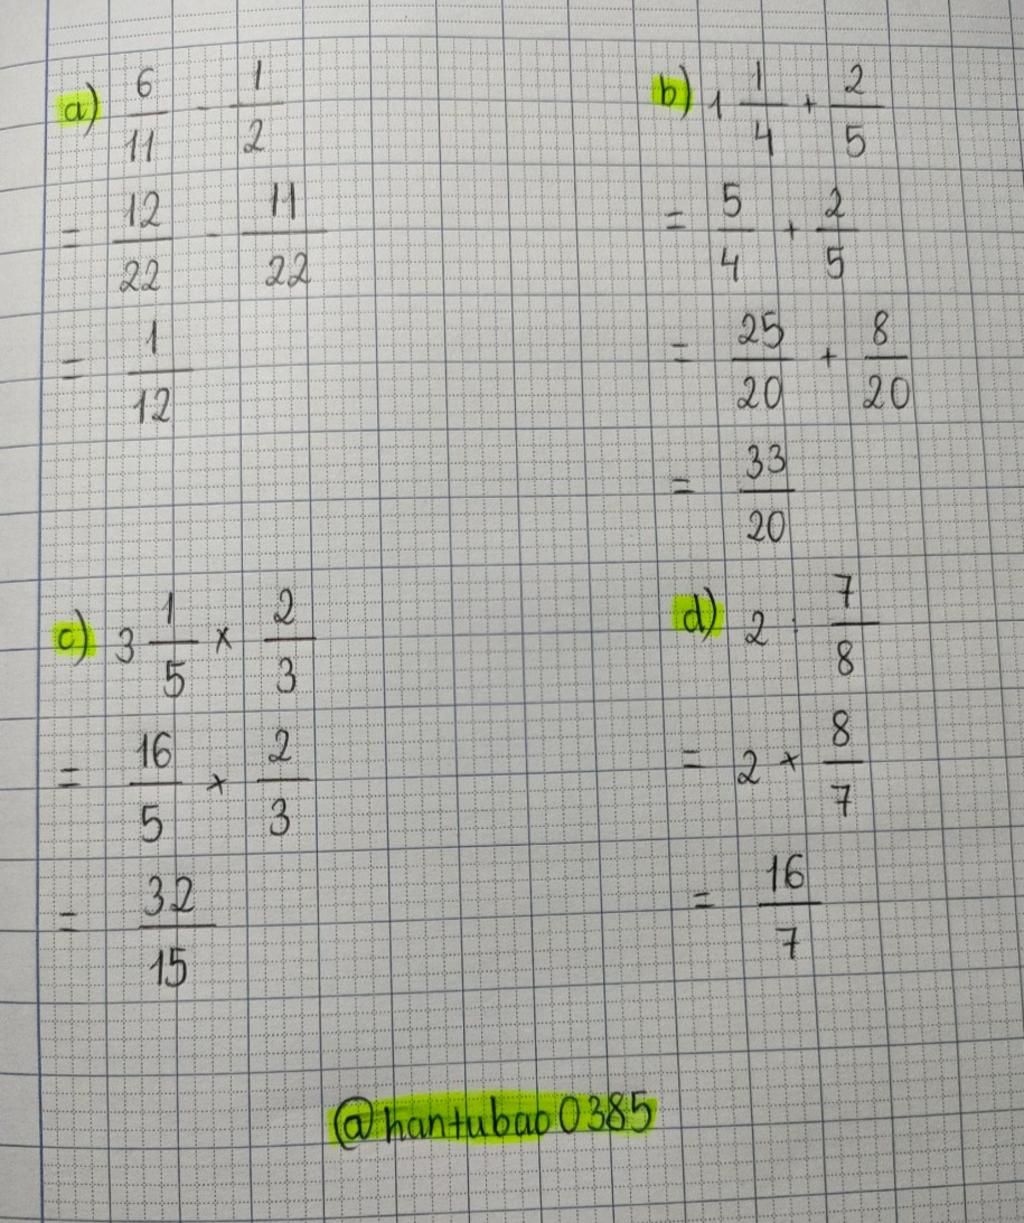 a) 6/11 - 1/2
= 12/22 - 11/22
= 1/12
b) 1 1/4 + 2/5
= 5/4 + 2/5
= 25/20 + 8/20
= 33/20
c) 3 1/5 x 2/3
= 16/5 x 2/3
= 32/15
d) 2 : 7/8
= 2 x 8/7
= 16/7
@hantubao0385